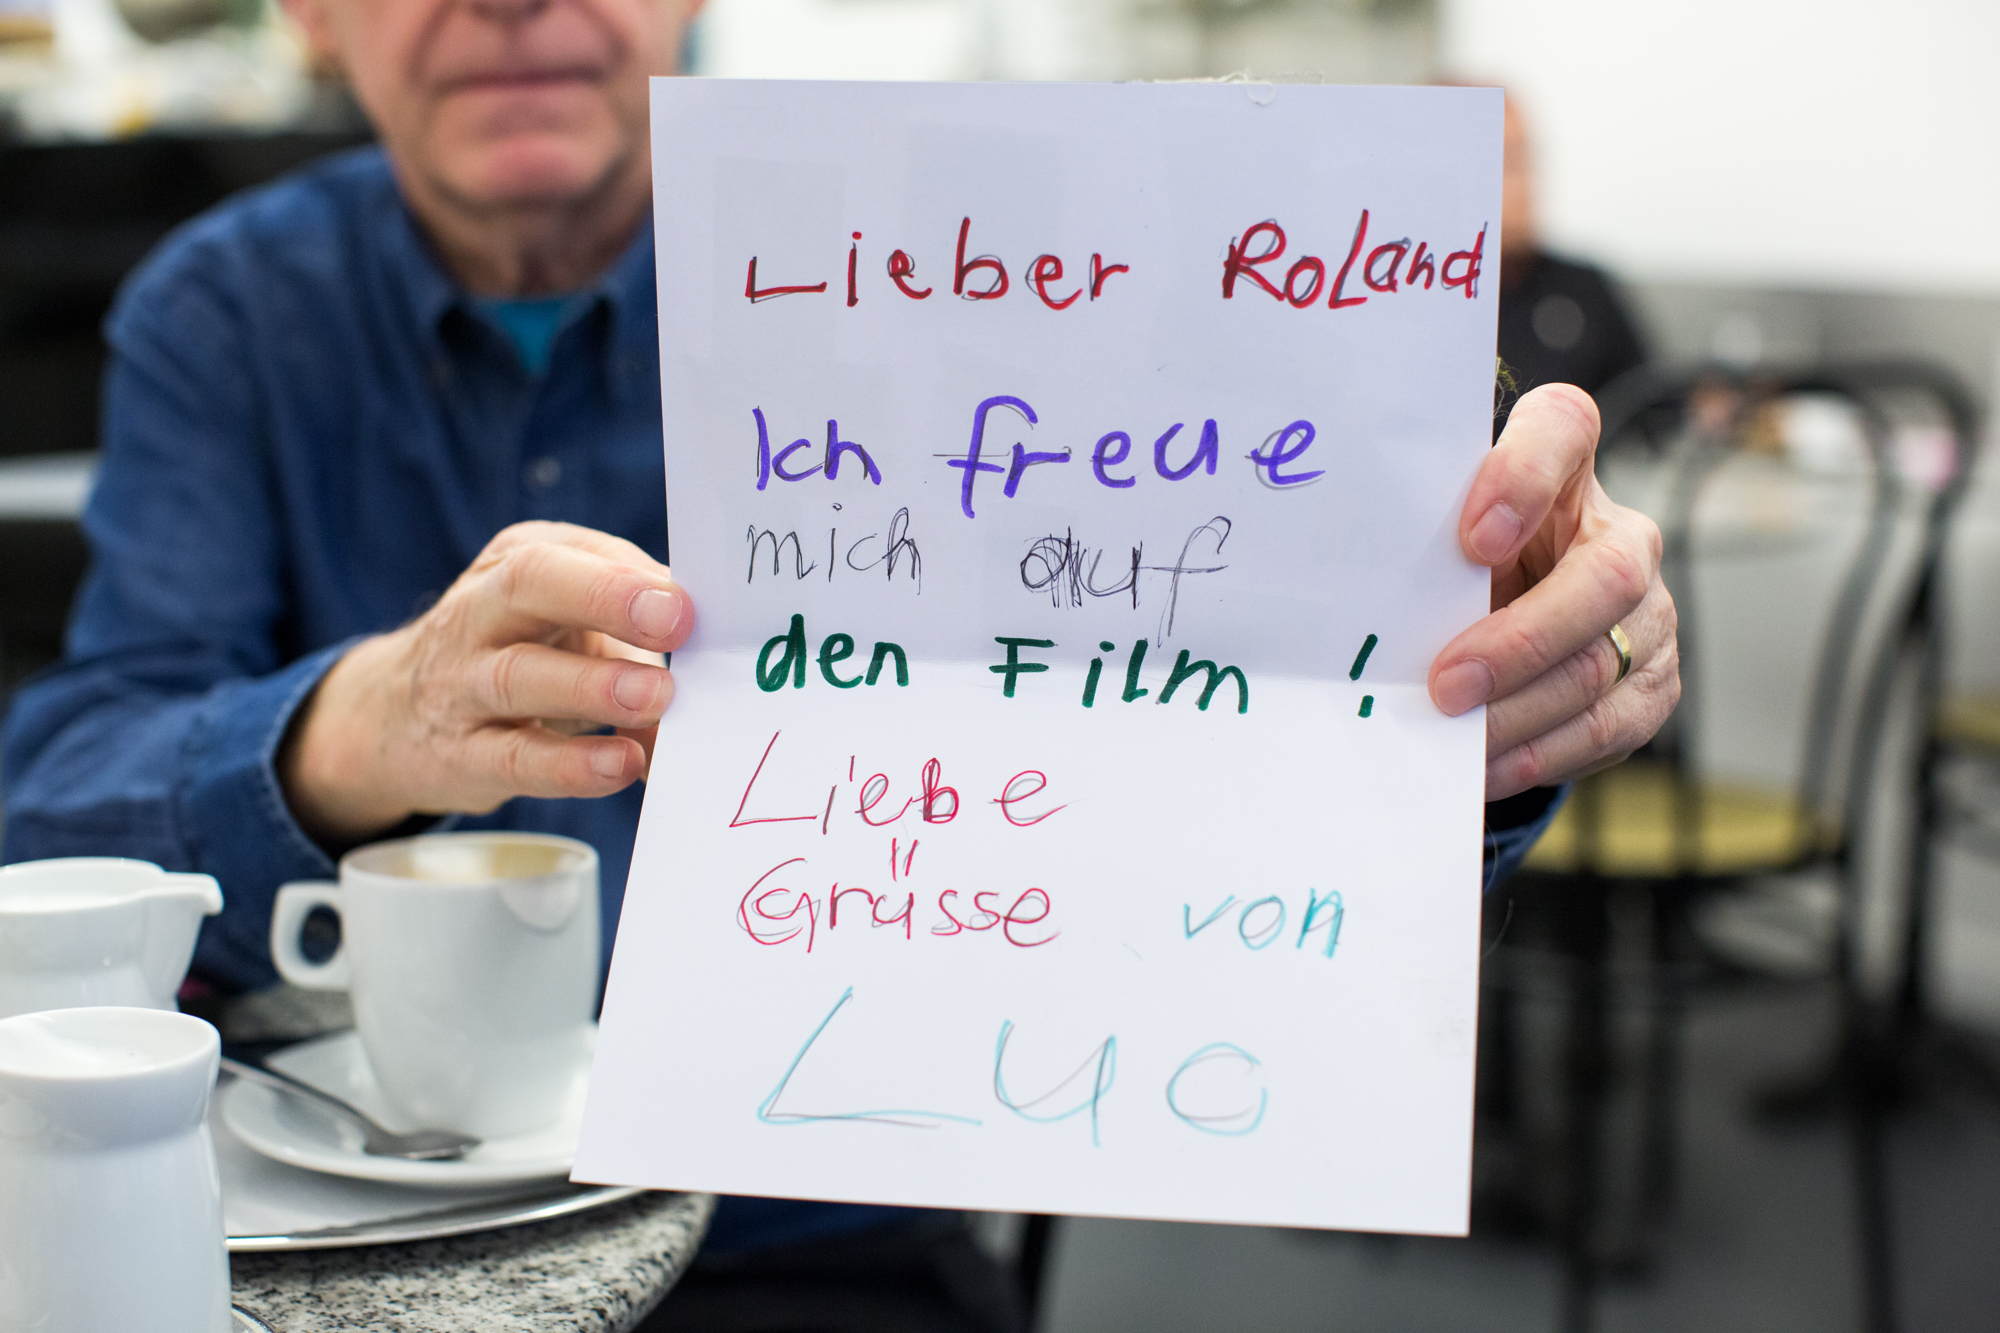 Lieber RoLand
Ich freue
mich auf
den FiLm !
Liebe
Grüsse von
Luc